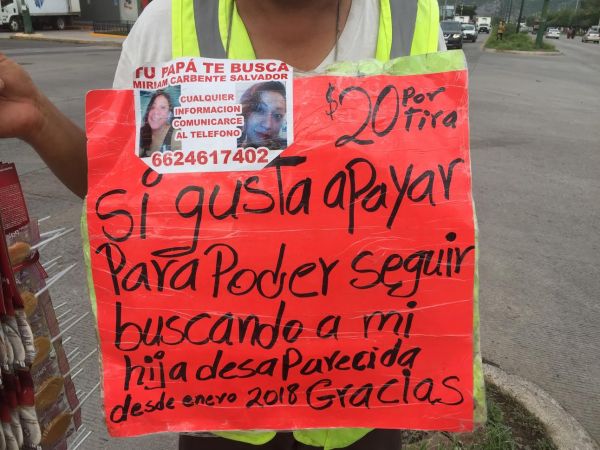 TU PAPÁ TE BUSCA
MIRIAM CARBENTE SALVADOR
CUALQUIER
INFORMACION
COMUNICARCE
AL TELEFONO
6624617402
$20 Por
tira
si gusta aPayar
Para Poder seguir
buscando a mi
hija desaParecida
desde enero 2018 Gracias